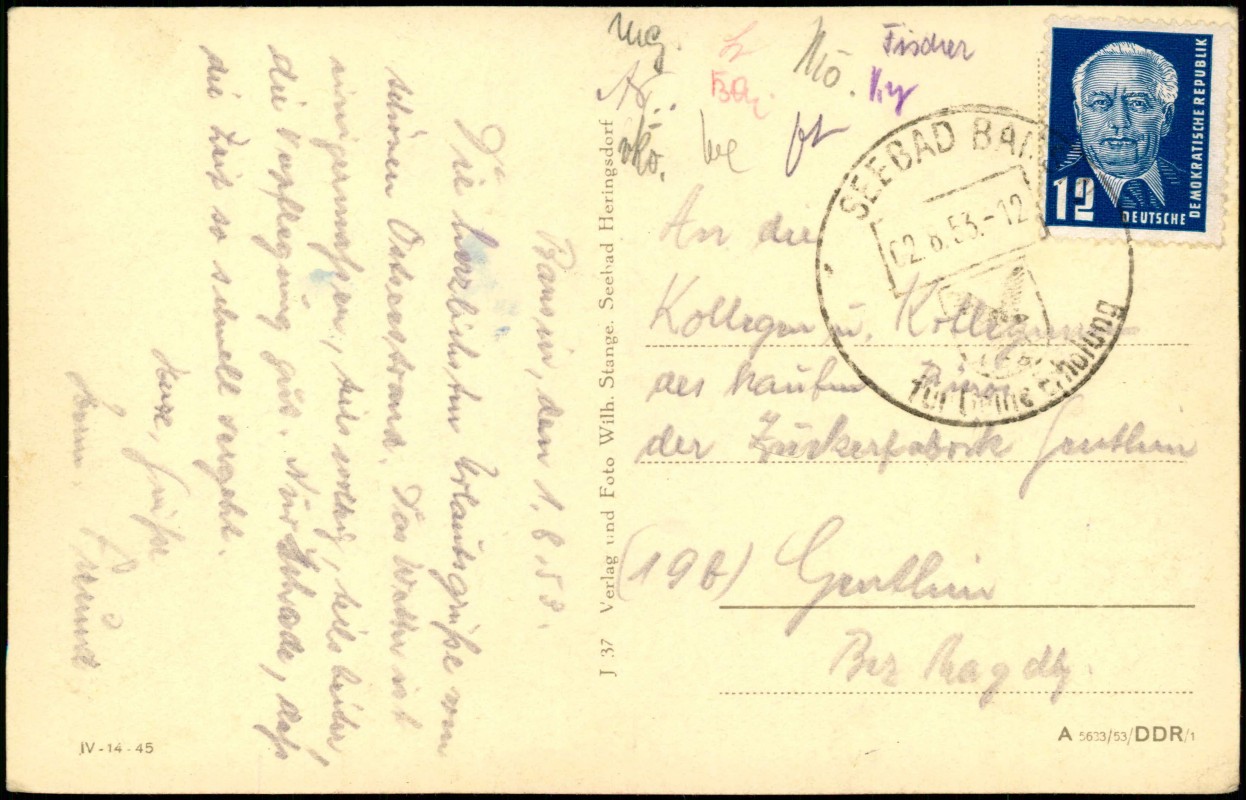 Bansin, den 1.6.53.
Die herzlichsten Urlaubsgrüße vom
schönen Ostseestrand. Das Wetter ist
einigermassen, teils wolkig, teils heiter,
die Verpflegung gut. Nur schade, dass
die Zeit so schnell vergeht.
Grüße
Freund
IV-14-45
J 37 Verlag und Foto Wilh. Stange. Seebad Heringsdorf
Fischer
SEEBAD BAN
02.6.53.-12
für Deine Erholung
12
DEUTSCHE
DEMOKRATISCHE REPUBLIK
An die
Kollegen u. Kolleginnen
des kaufm. Büros
der Zuckerfabrik Genthin
(19b) Genthin
Bez Magdbg.
A 5633/53/DDR/1